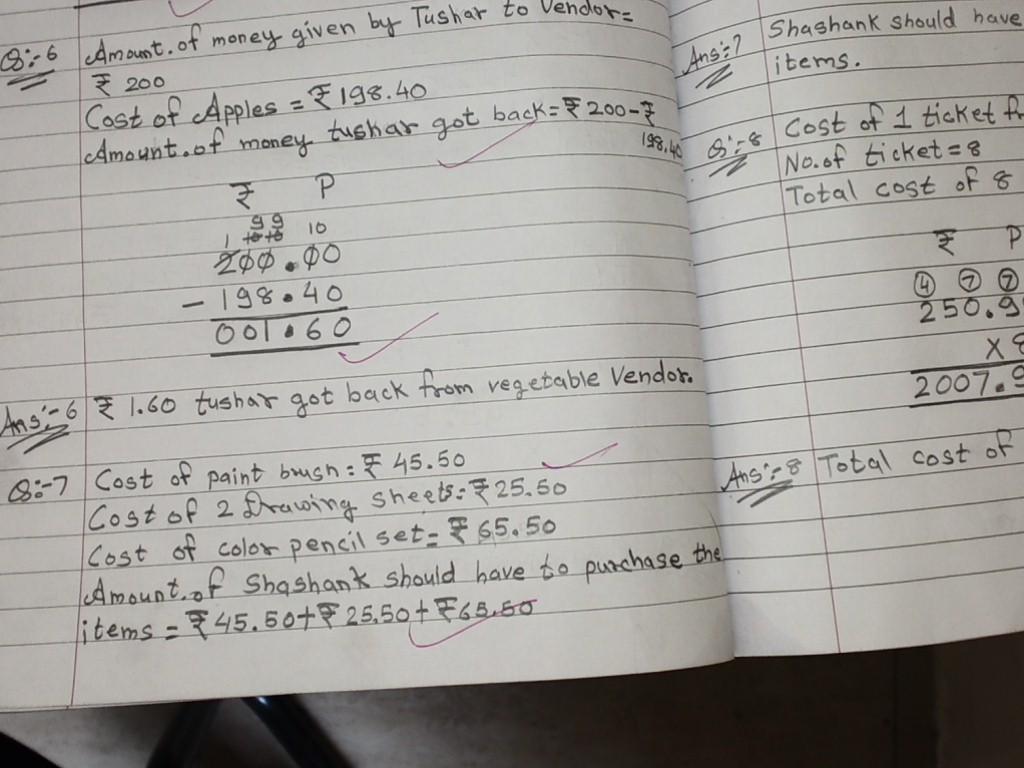 Q:-6 Amount.of money given by Tushar to Vendor=
₹ 200
Cost of Apples = ₹198.40
Amount.of money tushar got back=₹200-₹
198.40
₹ P
9 9
1 10 10 10
200.00
- 198.40
001.60
Ans:-6 ₹ 1.60 tushar got back from vegetable Vendor.
Q:-7 Cost of paint brush = ₹ 45.50
Cost of 2 Drawing sheets=₹25.50
Cost of color pencil set= ₹ 65.50
Amount.of Shashank should have to purchase the
items = ₹45.50+₹25.50+₹65.50
Ans:-7 Shashank should have
items.
Q:-8 Cost of 1 ticket
No.of ticket=8
Total cost of 8
₹ P
4 7 7
250.9
X 8
2007.9
Ans:-8 Total cost of